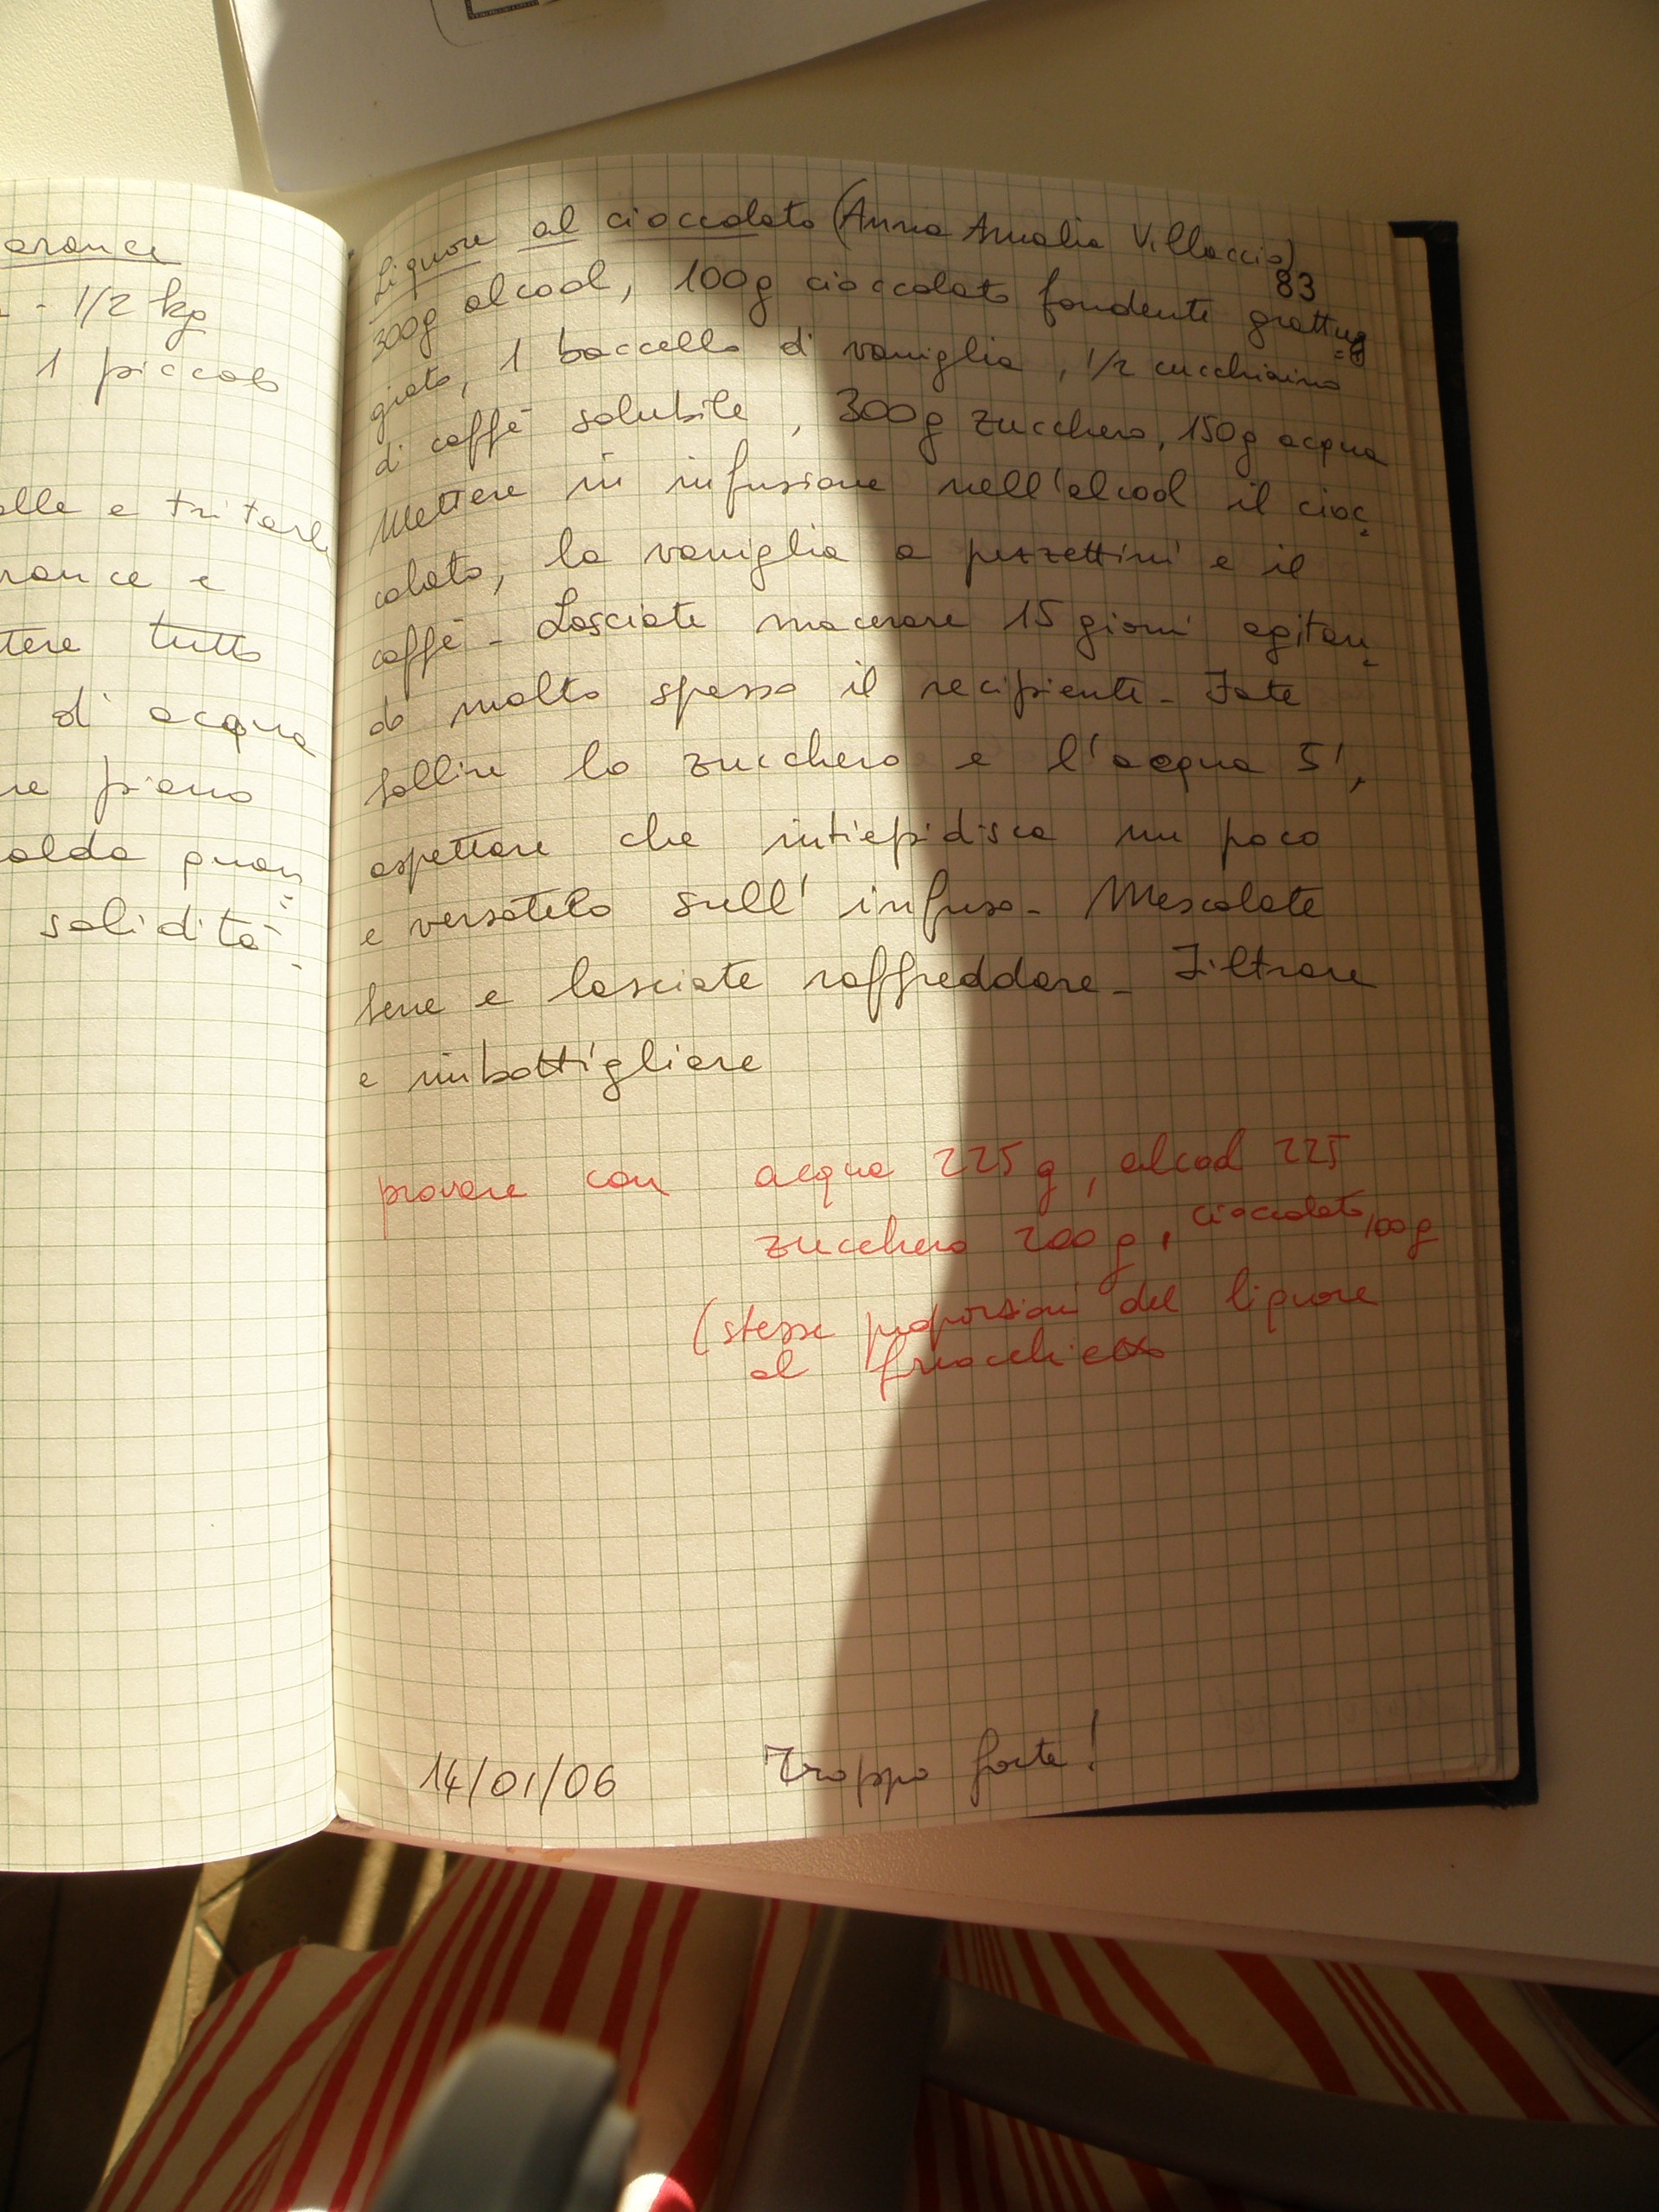 arance
- 1/2 kg
1 piccolo
olle e tritarle
rance e
tere tutto
d'acqua
re piano
alda quan=
solidità -
Liquore al cioccolato (Anna Amalia Villaccio)
83
300g alcool, 100g cioccolato fondente grattug=
giato, 1 baccello di vaniglia, 1/2 cucchiaino
di caffè solubile, 300g zucchero, 150g acqua
Mettere in infusione nell'alcool il cioc-
colato, la vaniglia a pezzettini e il
caffè - Lasciate macerare 15 giorni agitan-
do molto spesso il recipiente - Fate
bollire lo zucchero e l'acqua 5',
aspettare che intiepidisca un poco
e versatelo sull'infuso - Mescolate
bene e lasciate raffreddare - Filtrare
e imbottigliare
provare con acqua 225 g, alcool 225
zucchero 200 g, cioccolato 100g
(stesse proporzioni del liquore
al finocchietto
14/01/06 Troppo forte!